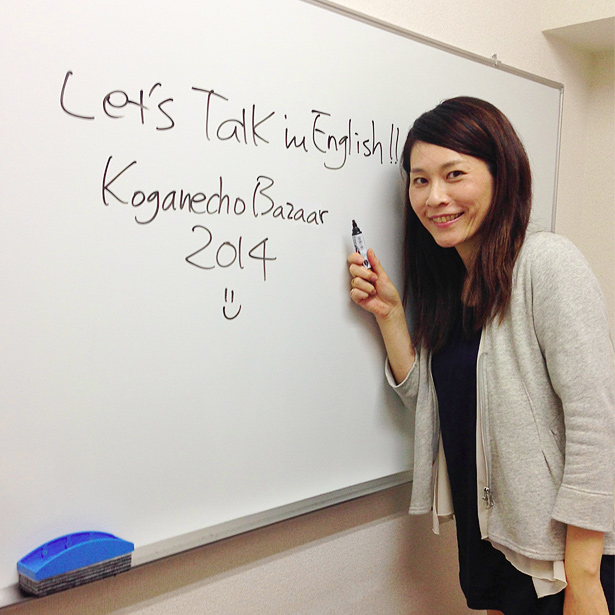 Let's Talk in English!!
Koganecho Bazaar
2014